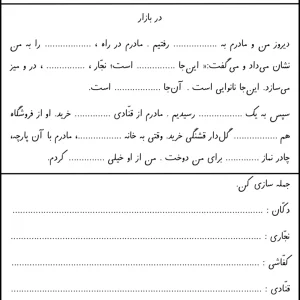 در بازار
دیروز من و مادرم به .................. رفتیم . مادرم در راه ، .................. را به من
نشان می‌داد و می‌گفت:« این‌جا ............... است؛ نجّار ، ............... ، در و میز
می‌سازد. این‌جا نانوایی است . آن‌جا .................. است.
سپس به یک .................. رسیدیم . مادرم از قنّادی ............... خرید. او از فروشگاه
هم .................. گل‌دار قشنگی خرید. وقتی به خانه ..................، مادرم با آن پارچه،
چادر نماز ............. برای من دوخت . من از او خیلی .............. کردم.
جمله سازی کن.
دکّان : ..................................................
نجّاری : ..................................................
کفّاشی : ..................................................
قنّادی : ..................................................